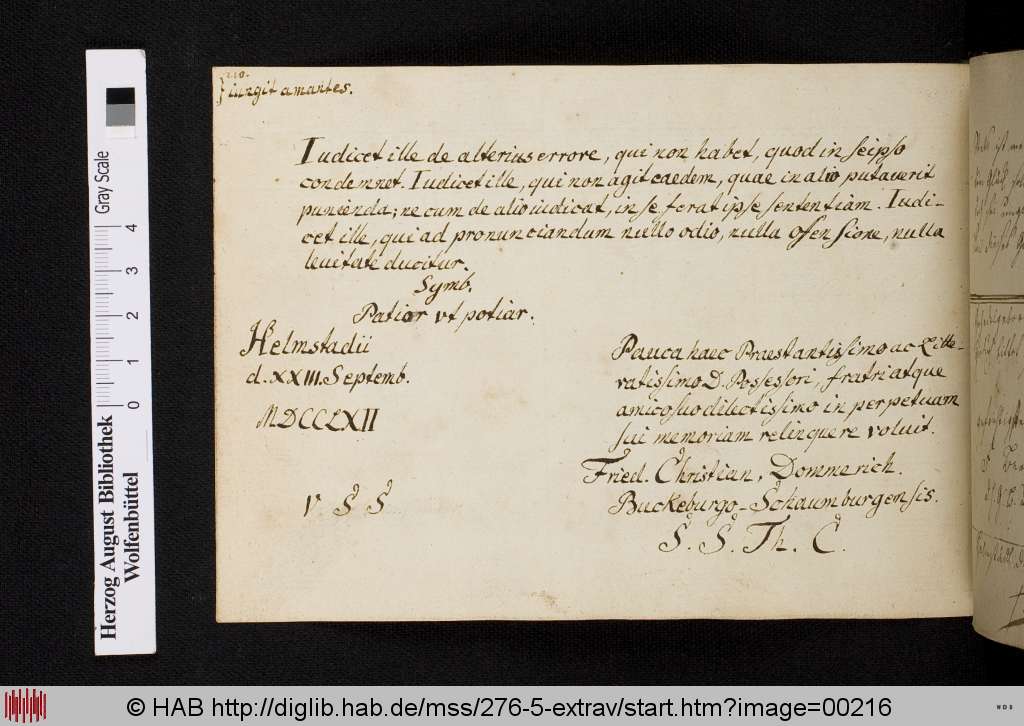 210.
} iungit amantes.
Iudicet ille de alterius errore, qui non habet, quod in seipso
condemnet. Iudicet ille, qui non agit eaedem, quae in alio putaverit
punienda; ne cum de alio iudicat, in se ferat ipse sententiam. Iudi-
cet ille, qui ad pronunciandum nullo odio, nulla offensione, nulla
levitate ducitur.
Symb.
Patior vt potiar.
Helmstadii
d. XXIII. Septemb.
MDCCLXII
V S S
Pauca haec Praestantissimo ac Litte-
ratissimo D. Possessori, fratri atque
amico suo dilectissimo in perpetuam
sui memoriam relinquere voluit.
Fried. Christian, Dommerich.
Buckeburgo-Schaumburgensis.
S. S. Th. C.
Gray Scale
0 1 2 3 4
Herzog August Bibliothek
Wolfenbüttel
© HAB http://diglib.hab.de/mss/276-5-extrav/start.htm?image=00216
WDB